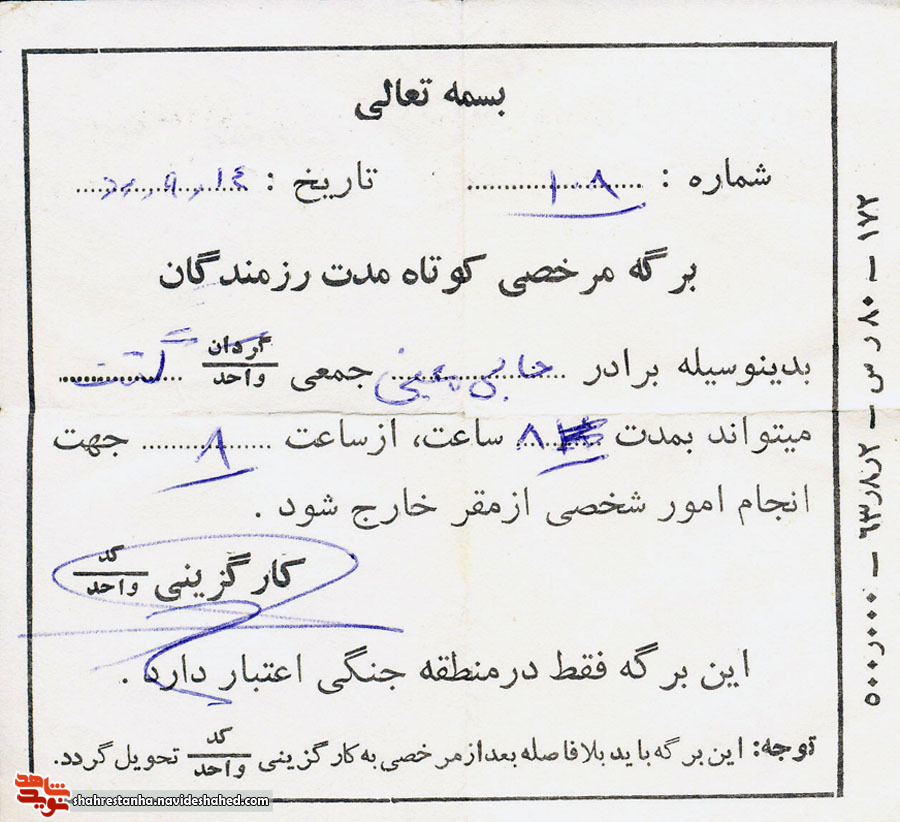 بسمه تعالی
شماره : ۱۰۸ تاریخ :
برگه مرخصی کوتاه مدت رزمندگان
بدینوسیله برادر جمعی گردان / واحد گشت
میتواند بمدت ۸ ساعت، از ساعت ۸ جهت
انجام امور شخصی از مقر خارج شود .
کارگزینی کد / واحد
این برگه فقط در منطقه جنگی اعتبار دارد .
توجه: این برگه باید بلافاصله بعد از مرخصی به کارگزینی کد / واحد تحویل گردد.
۱۷۲ – ۸۰ ر س – ۶۳٫۸٫۲ – ۵۰۰٫۰۰۰
نوید شاهد
shahrestanha.navideshahed.com